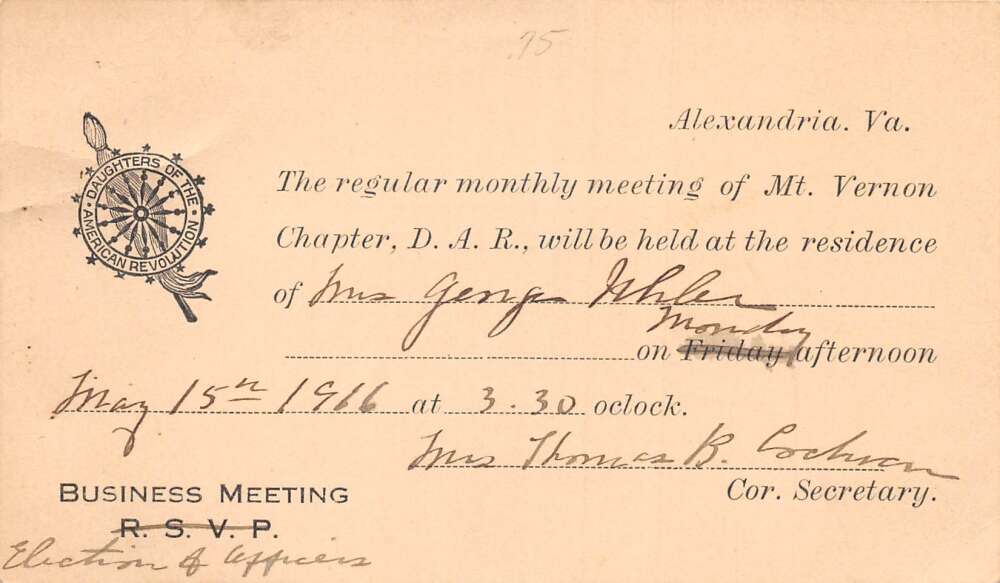 75
Alexandria. Va.
DAUGHTERS OF THE
AMERICAN REVOLUTION
The regular monthly meeting of Mt. Vernon
Chapter, D. A. R., will be held at the residence
of Mrs George Uhler
Monday
on Friday afternoon
May 15th 1916 at 3.30 oclock.
Mrs Thomas B. Cochran
Cor. Secretary.
BUSINESS MEETING
R. S. V. P.
Election of officers